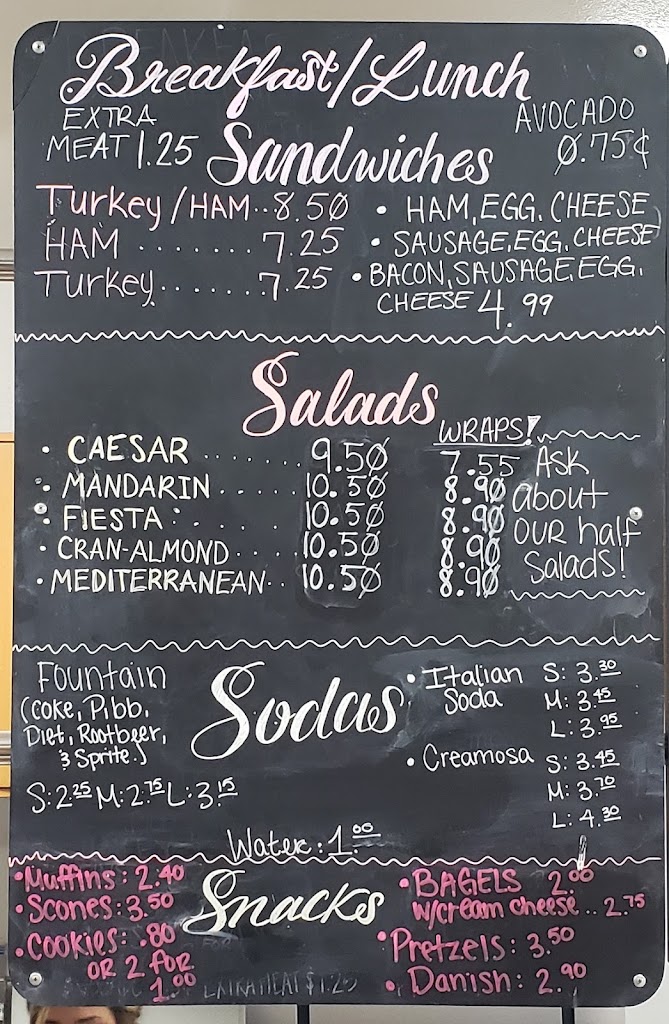 Breakfast/Lunch
EXTRA
MEAT 1.25
Sandwiches
AVOCADO
0.75¢
Turkey/HAM..8.50
HAM.......7.25
Turkey......7.25
• HAM, EGG, CHEESE
• SAUSAGE, EGG, CHEESE
• BACON, SAUSAGE, EGG,
CHEESE 4.99
Salads
WRAPS!
• CAESAR ...... 9.50 7.55
• MANDARIN ..... 10.50 8.90
• FIESTA ....... 10.50 8.90
• CRAN-ALMOND .... 10.50 8.90
• MEDITERRANEAN.. 10.50 8.90
ASK
about
OUR half
Salads!
Fountain
(Coke, Pibb,
Diet, Rootbeer,
& Sprite.)
S: 2.25 M: 2.75 L: 3.15
Sodas
• Italian Soda S: 3.30
M: 3.45
L: 3.95
• Creamosa S: 3.45
M: 3.70
L: 4.30
Water: 1.00
Snacks
• Muffins: 2.40
• Scones: 3.50
• Cookies: .80
OR 2 FOR
1.00
• BAGELS 2.00
w/cream cheese .. 2.75
• Pretzels: 3.50
• Danish: 2.90
EXTRA MEAT $1.25